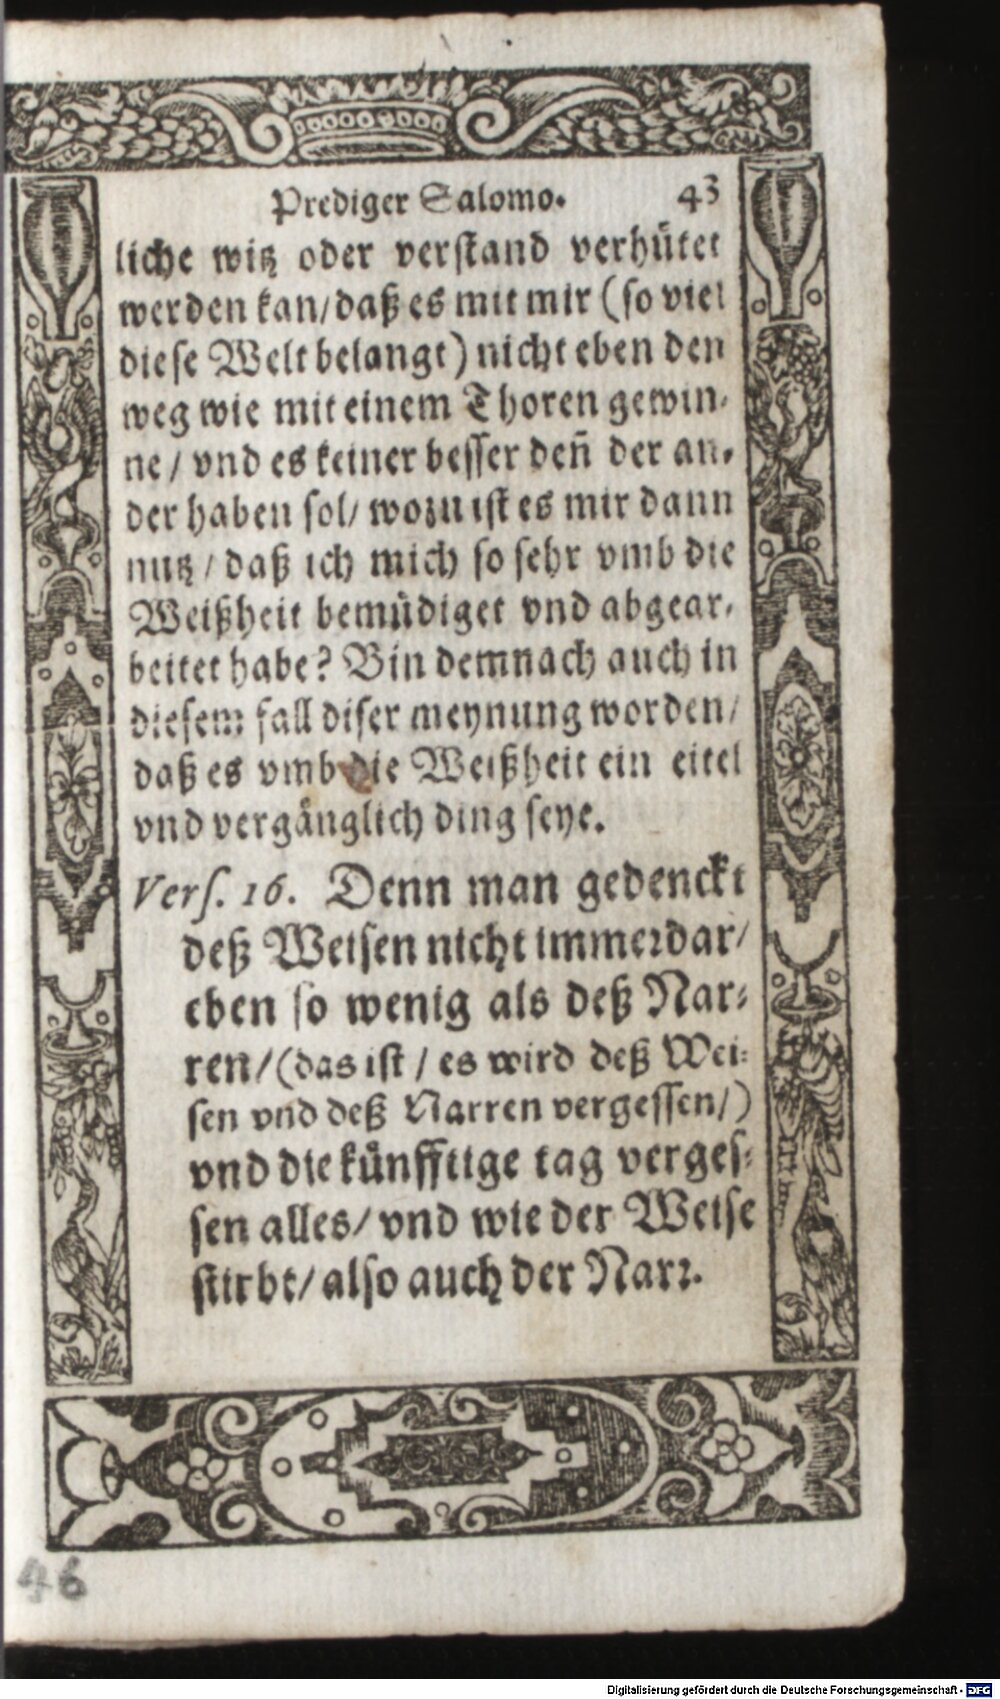 Prediger Salomo. 43
liche witz oder verstand verhütet
werden kan/daß es mit mir (so viel
diese Welt belangt) nicht eben den
weg wie mit einem Thoren gewin-
ne / vnd es keiner besser den̄ der an-
der haben sol/ wozu ist es mir dann
nutz / daß ich mich so sehr vmb die
Weißheit bemüdiget vnd abgear-
beitet habe? Bin demnach auch in
diesem fall diser meynung worden/
daß es vmb die Weißheit ein eitel
vnd vergänglich ding seye.
Vers. 16. Denn man gedenckt
deß Weisen nicht immerdar/
eben so wenig als deß Nar-
ren/(das ist / es wird deß Wei-
sen vnd deß Narren vergessen/)
vnd die künfftige tag verges-
sen alles/ vnd wie der Weise
stirbt/ also auch der Narr.
46
Digitalisierung gefördert durch die Deutsche Forschungsgemeinschaft - DFG